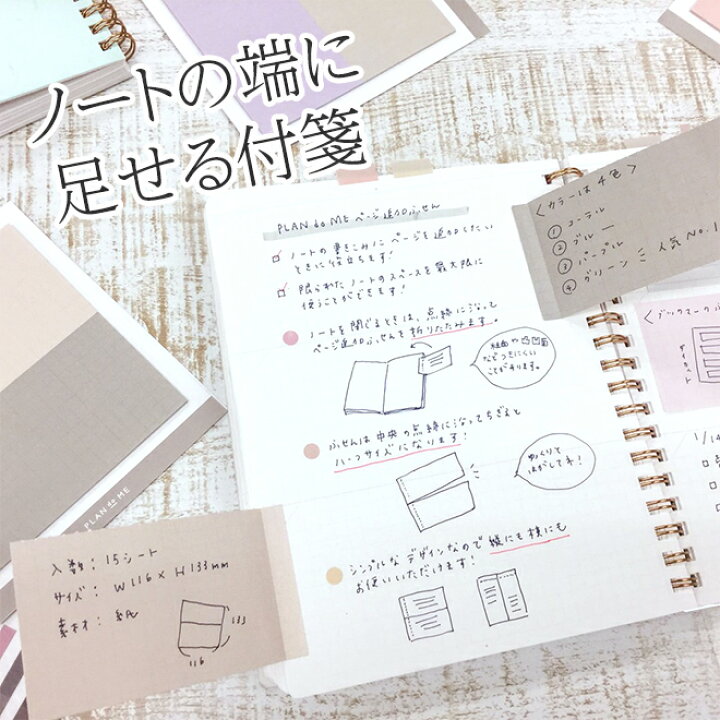 ノートの端に
足せる付箋
PLAN do ME ページ追加ふせん
ノートの書きこみにページを追加したい
ときに役立ちます!
限られたノートのスペースを最大限に
使うことができます!
ノートを閉じるときは、点線に沿って
ページ追加ふせんを折りたたみます。
などつきにくい
ことがあります。
ふせんは中央の点線に沿ってちぎると
ハーフサイズになります!
ゆっくりと
はがしてネ!
シンプルなデザインなので縦にも横にも
お使いいただけます!
<カラーは4色>
① コーラル
② ブルー
③ パープル
④ グリーン 人気No.1
<ブックマーク
1/14
PLAN do ME
入数:15シート
サイズ:W116×H133mm
素材:紙
133
116